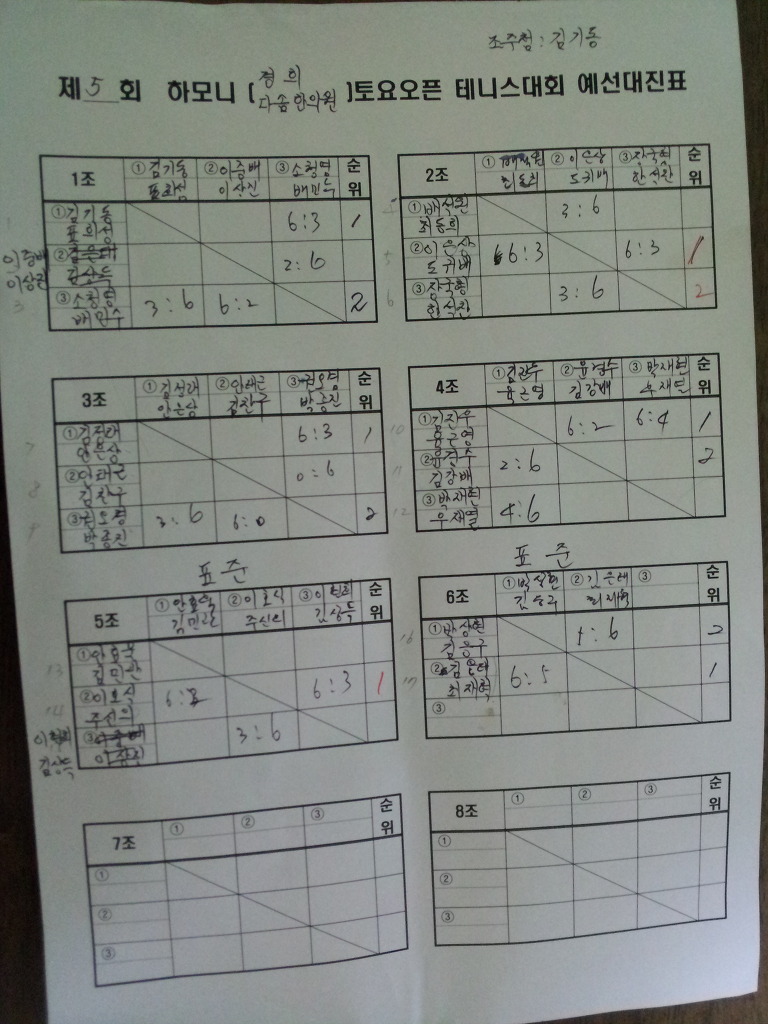 조주첨 : 김기동
경희
제 5 회 하모니 [ ]토요오픈 테니스대회 예선대진표
다솜한의원
1조 ①김기동 ②이중배 ③소청영 순위
표희성 이상진 배민수
①김기동 6:3 1
표희성
이중배 ② 2:6
이상진 김상득
③소청영 3:6 6:2 2
배민수
2조 ① ②이은상 ③장국현 순위
최동희 도귀배 한석찬
①배석원 3:6
최동희
②이은상 6:3 6:3 1
도귀배
③장국형 3:6 2
한석찬
3조 ①김정래 ②안태근 ③권오영 순위
안은상 김찬구 박종진
①김정래 6:3 1
안은상
②안태근 0:6
김찬구
③권오영 3:6 6:0 2
박종진
4조 ①김진우 ②윤경수 ③박재현 순위
육근영 김강배 우재열
①김진우 6:2 6:4 1
육근영
②윤경수 2:6 2
김강배
③박재현 4:6
우재열
표준
5조 ① ②이호식 ③이원희 순위
김민관 주신의 김상득
①
김민관
②이호식 6:2 6:3 1
주신의
③ 3:6
김상득
표준
6조 ①박상현 ②김은태 ③ 순위
김승구 최재혁
①박상현 5:6 2
김승구
②김은태 6:5 1
최재혁
③
7조 ① ② ③ 순위
①
②
③
8조 ① ② ③ 순위
①
②
③